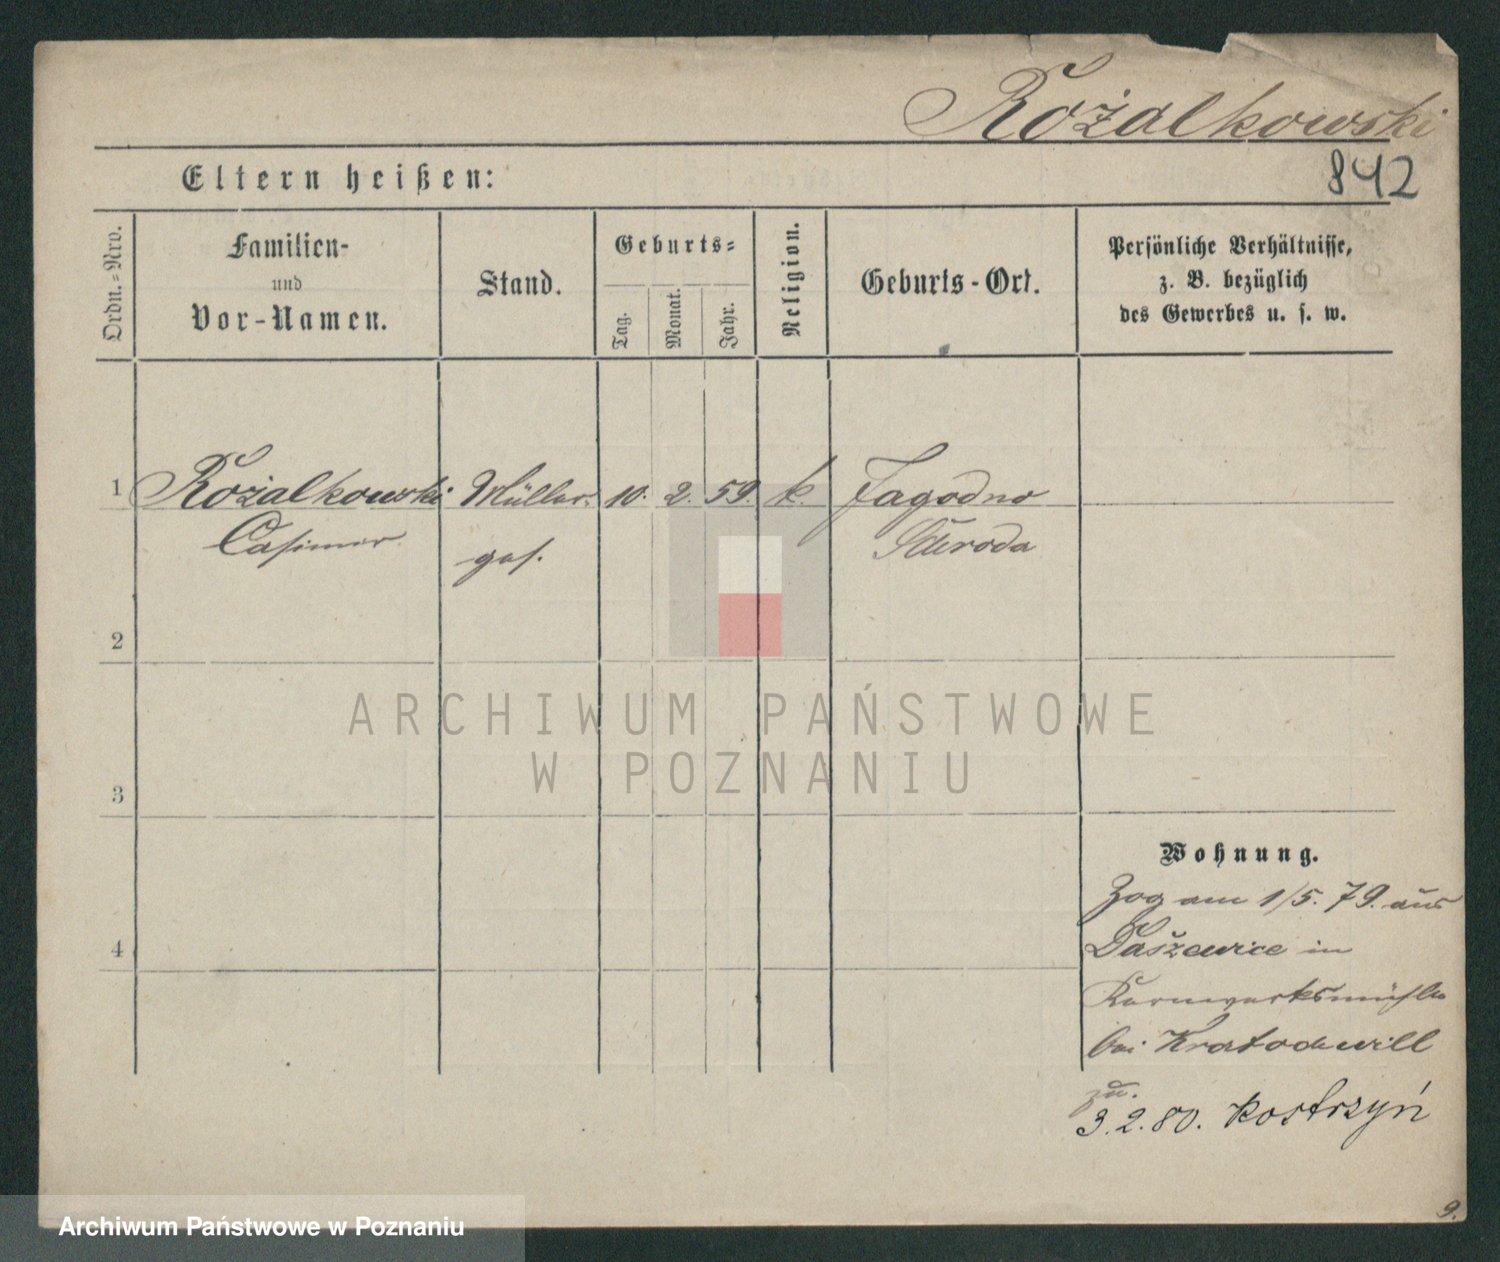 Rożalkowski
842
Eltern heißen:
Ordn.-Nro.
Familien-
und
Vor-Namen.
Stand.
Geburts-
Tag.
Monat.
Jahr.
Religion.
Geburts-Ort.
Persönliche Verhältnisse,
z. B. bezüglich
des Gewerbes u. s. w.
1 Rożalkowski Müller 10. 2. 59. k. Jagodno
Casimir ges. Schroda
2
3
4
ARCHIWUM PAŃSTWOWE
W POZNANIU
Wohnung.
Zog am 1/5. 79. aus
Daszewice in
Kornwerksmühle
bei Kratochwill
zu.
3.2.80. Kostrzyń
9.
Archiwum Państwowe w Poznaniu